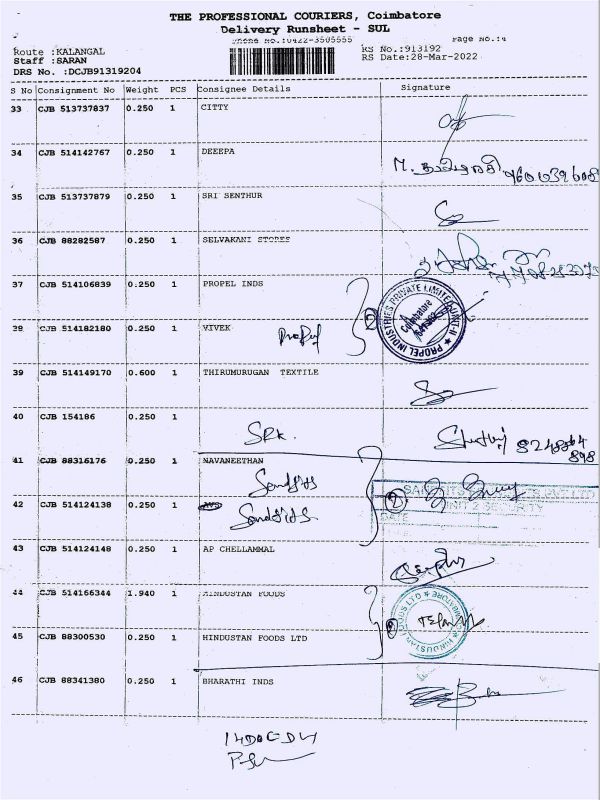 THE PROFESSIONAL COURIERS, Coimbatore
Delivery Runsheet - SUL
Phone No.:0422-3505555 Page No.:4
Route :KALANGAL RS No.:913192
Staff :SARAN RS Date:28-Mar-2022
DRS No. :DCJB91319204
S No Consignment No Weight PCS Consignee Details Signature
33 CJB 513737837 0.250 1 CITTY
34 CJB 514142767 0.250 1 DEEEPA
35 CJB 513737879 0.250 1 SRI SENTHUR
36 CJB 88282587 0.250 1 SELVAKANI STORES
37 CJB 514106839 0.250 1 PROPEL INDS
PROPEL INDUSTRIES PRIVATE LIMITED UNIT-II
Coimbatore
2
38 CJB 514182180 0.250 1 VIVEK
Propel
39 CJB 514149170 0.600 1 THIRUMURUGAN TEXTILE
40 CJB 154186 0.250 1
SRK.
41 CJB 88316176 0.250 1 NAVANEETHAN
Sandfits
2
UNIT 2 SECURITY
DATE
42 CJB 514124138 0.250 1
Sandfits
43 CJB 514124148 0.250 1 AP CHELLAMMAL
44 CJB 514166344 1.940 1 HINDUSTAN FOODS
HINDUSTAN FOODS LTD COIMBATORE
2
45 CJB 88300530 0.250 1 HINDUSTAN FOODS LTD
46 CJB 88341380 0.250 1 BHARATHI INDS